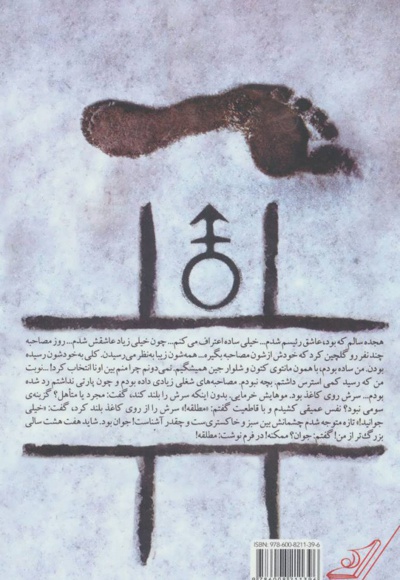 هجده سالم که بود، عاشق رئیسم شدم... خیلی ساده اعتراف می‌کنم... چون خیلی زیاد عاشقش شدم... روز مصاحبه
چند نفر رو گلچین کرد که خودش ازشون مصاحبه بگیره... همه‌شون زیبا به نظر می‌رسیدن. کلی به خودشون رسیده
بودن. من ساده بودم، با همون مانتوی کتون و شلوار جین همیشگیم. نمی‌دونم چرا منم بین اونا انتخاب کرد!... نوبت
من که رسید کمی استرس داشتم. بچه نبودم. مصاحبه‌های شغلی زیادی داده بودم و چون پارتی نداشتم رد شده
بودم... سرش روی کاغذ بود. موهایش خرمایی. بدون اینکه سرش را بلند کند، گفت: مجرد یا متأهل؟ گزینه‌ی
سومی نبود؟ نفس عمیقی کشیدم و با قاطعیت گفتم: «مطلقه!» سرش را از روی کاغذ بلند کرد، گفت: «خیلی
جوانید!» تازه متوجه شدم چشمانش بین سبز و خاکستری‌ست و چقدر آشناست! جوان بود. شاید هفت هشت سالی
بزرگ‌تر از من! گفتم: جوان؟ ممکنه! در فرم نوشت: مطلقه!
ISBN: 978-600-8211-39-6